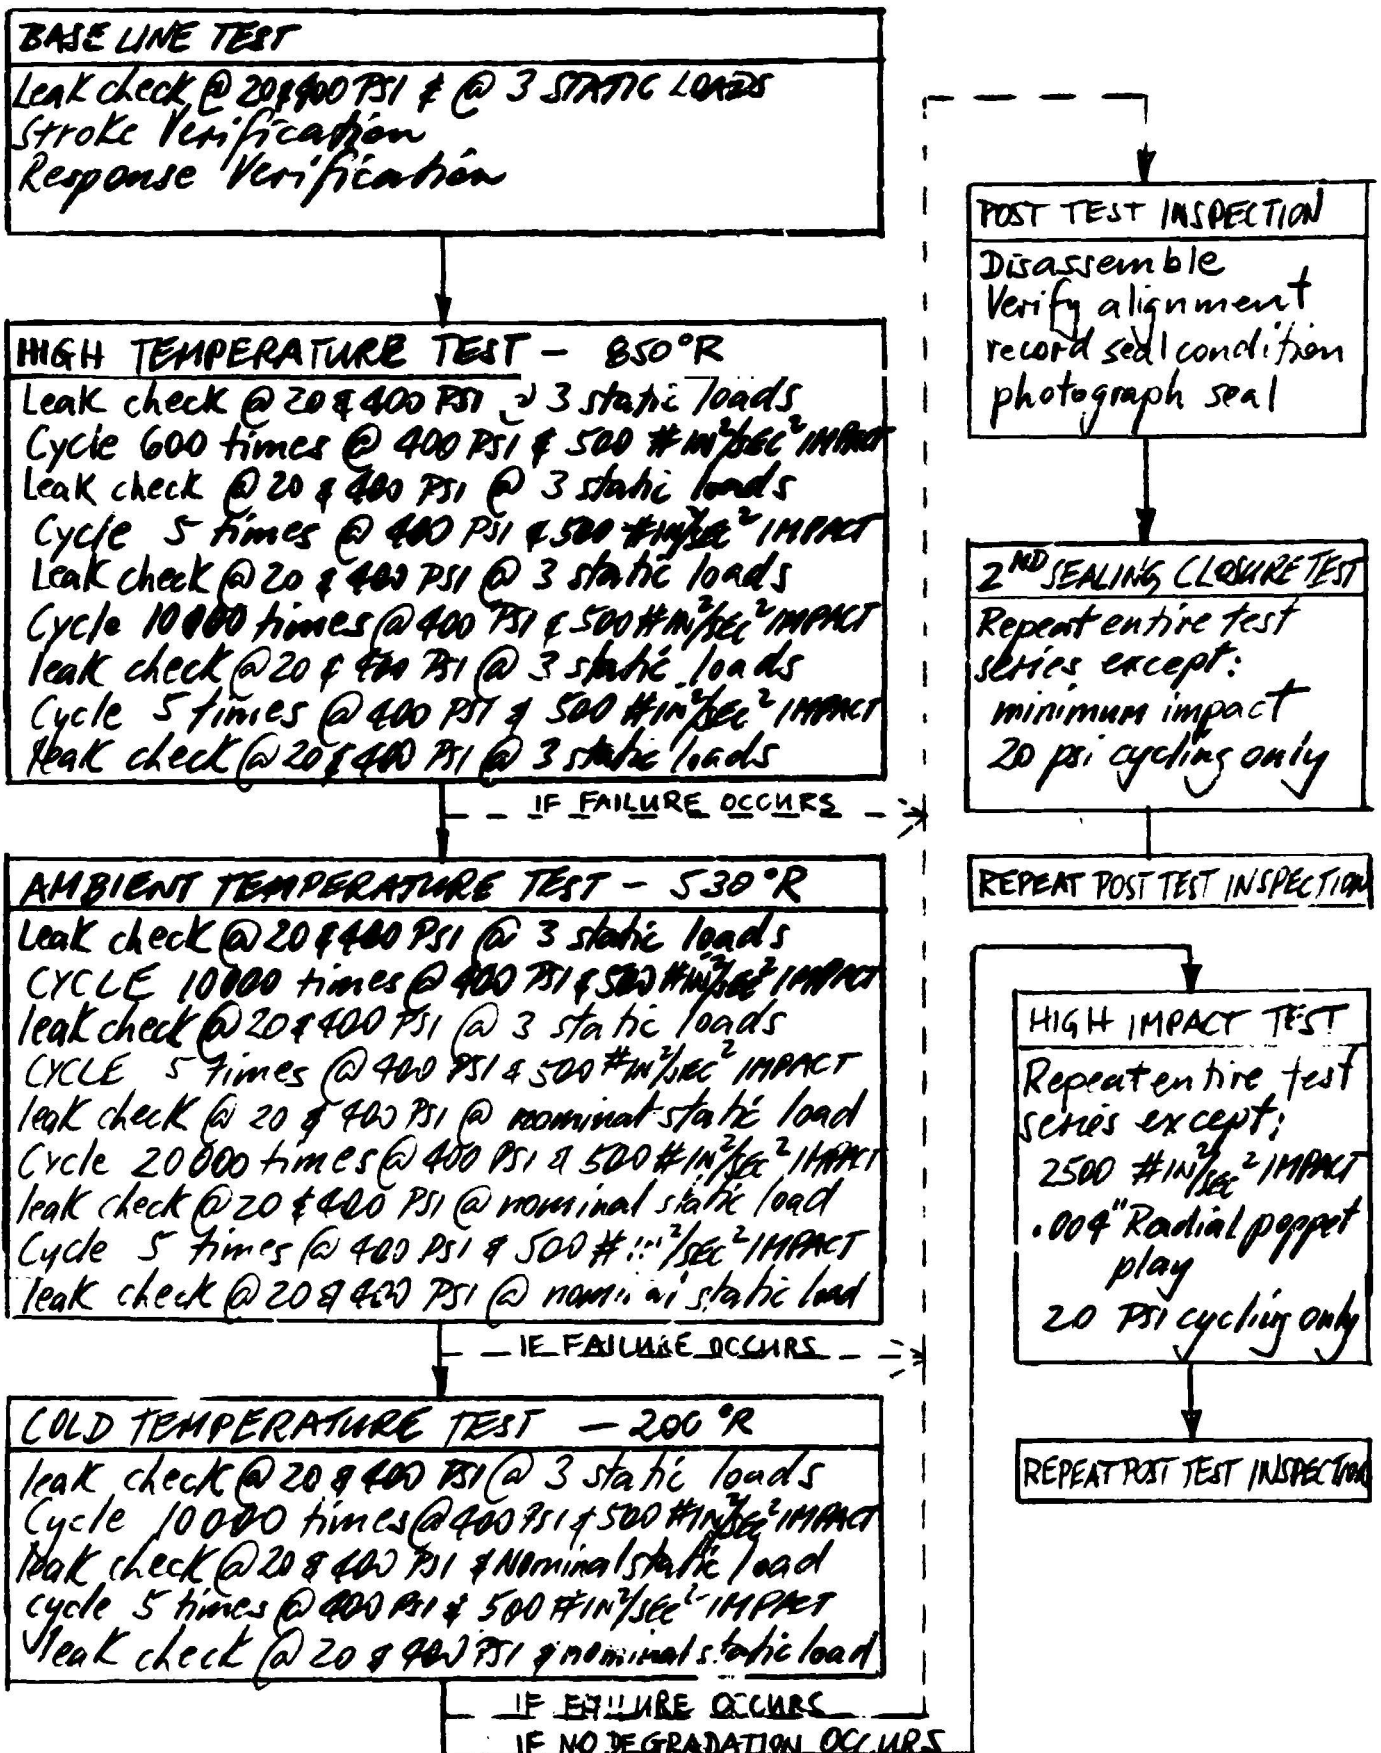 BASE LINE TEST
Leak check @ 20 & 400 PSI & @ 3 STATIC LOADS
Stroke Verification
Response Verification
HIGH TEMPERATURE TEST - 850°R
Leak check @ 20 & 400 PSI @ 3 static loads
Cycle 600 times @ 400 PSI & 500 # IN²/SEC² IMPACT
Leak check @ 20 & 400 PSI @ 3 static loads
Cycle 5 times @ 400 PSI & 500 # IN²/SEC² IMPACT
Leak check @ 20 & 400 PSI @ 3 static loads
Cycle 10000 times @ 400 PSI & 500 # IN²/SEC² IMPACT
leak check @ 20 & 400 PSI @ 3 static loads
Cycle 5 times @ 400 PSI & 500 # IN²/SEC² IMPACT
leak check @ 20 & 400 PSI @ 3 static loads
IF FAILURE OCCURS
AMBIENT TEMPERATURE TEST - 530°R
Leak check @ 20 & 400 PSI @ 3 static loads
CYCLE 10000 times @ 400 PSI & 500 # IN²/SEC² IMPACT
leak check @ 20 & 400 PSI @ 3 static loads
CYCLE 5 times @ 400 PSI & 500 # IN²/SEC² IMPACT
leak check @ 20 & 400 PSI @ nominal static load
Cycle 20000 times @ 400 PSI & 500 # IN²/SEC² IMPACT
leak check @ 20 & 400 PSI @ nominal static load
Cycle 5 times @ 400 PSI & 500 # IN²/SEC² IMPACT
leak check @ 20 & 400 PSI @ nominal static load
IF FAILURE OCCURS
COLD TEMPERATURE TEST - 200°R
leak check @ 20 & 400 PSI @ 3 static loads
Cycle 10000 times @ 400 PSI & 500 # IN²/SEC² IMPACT
leak check @ 20 & 400 PSI & Nominal static load
cycle 5 times @ 400 PSI & 500 # IN²/SEC² IMPACT
leak check @ 20 & 400 PSI & nominal static load
IF FAILURE OCCURS
IF NO DEGRADATION OCCURS
POST TEST INSPECTION
Disassemble
Verify alignment
record seal condition
photograph seal
2ND SEALING CLOSURE TEST
Repeat entire test
series except:
minimum impact
20 psi cycling only
REPEAT POST TEST INSPECTION
HIGH IMPACT TEST
Repeat entire test
series except:
2500 # IN²/SEC² IMPACT
.004" Radial poppet
play
20 PSI cycling only
REPEAT POST TEST INSPECTION